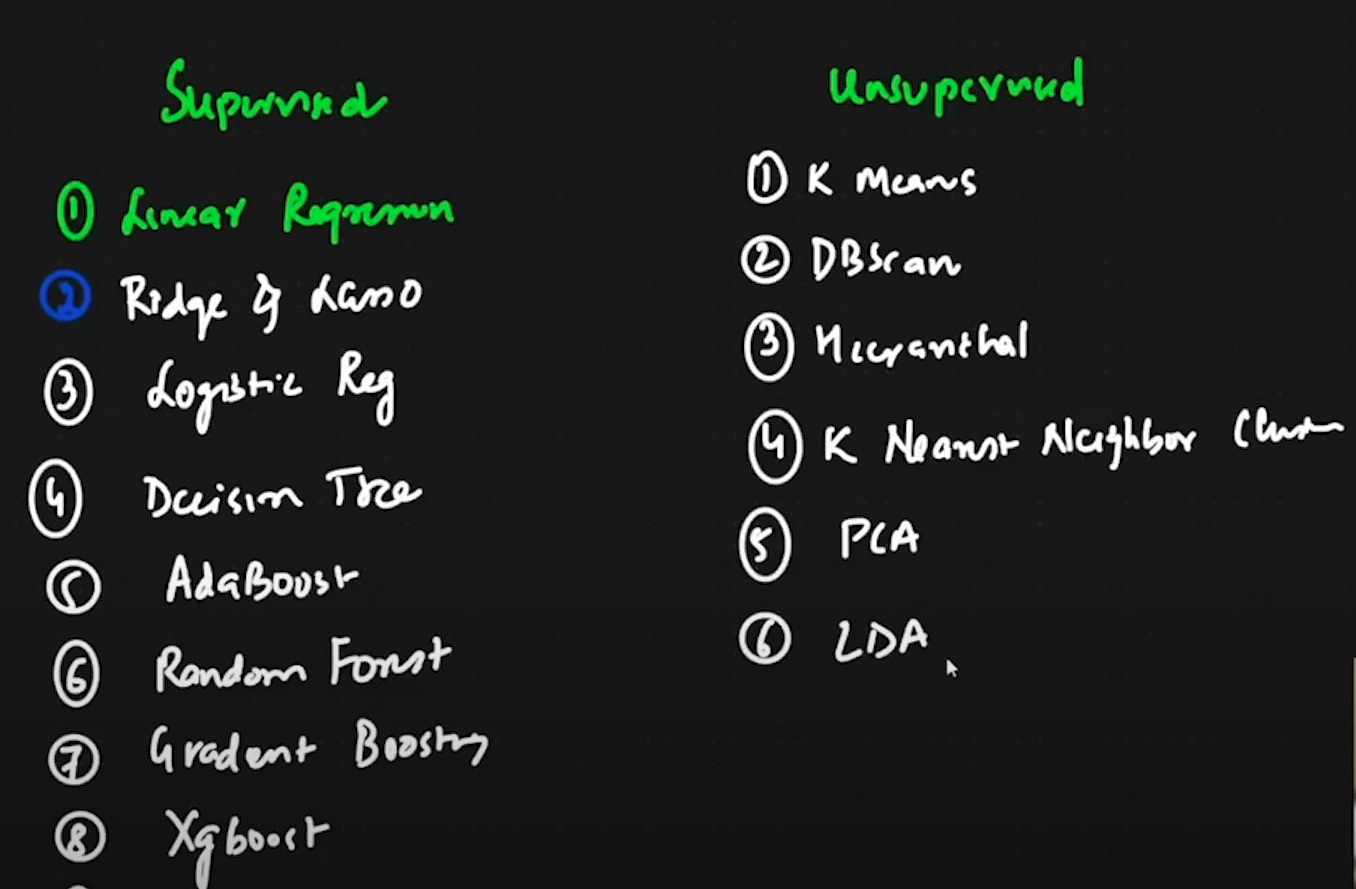 Supervised
① Linear Regression
② Ridge & Lasso
③ Logistic Reg
④ Decision Tree
⑤ AdaBoost
⑥ Random Forest
⑦ Gradient Boosting
⑧ Xgboost
Unsupervised
① K Means
② DBScan
③ Hierarchical
④ K Nearest Neighbor Cluster
⑤ PCA
⑥ LDA